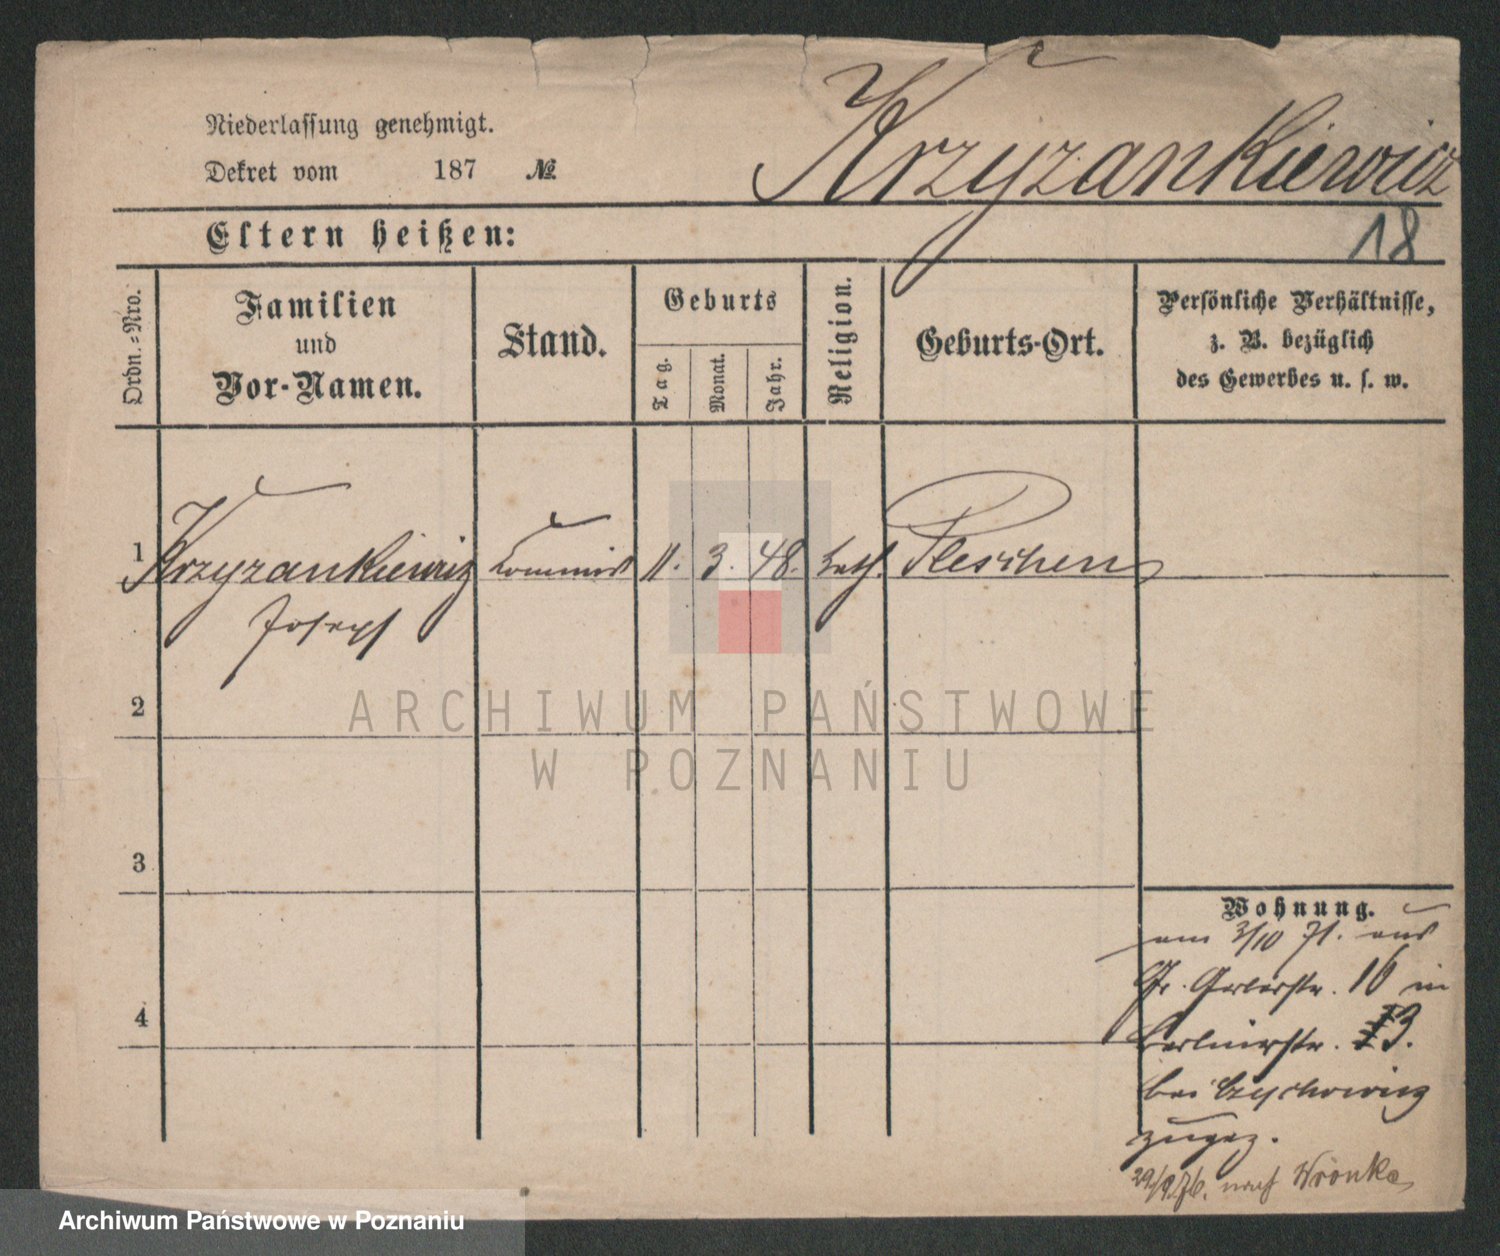 Niederlassung genehmigt.
Dekret vom 187 №
Krzyzankiewicz
18
Eltern heißen:
Ordn.-Nro.
Familien
und
Vor-Namen.
Stand.
Geburts
Tag.
Monat.
Jahr.
Religion.
Geburts-Ort.
Persönliche Verhältnisse,
z. B. bezüglich
des Gewerbes u. s. w.
1 Krzyzankiewicz Commis 11. 3. 48. kath. Pleschen
Joseph
2
3
4
ARCHIWUM PAŃSTWOWE
W POZNANIU
Wohnung.
am 3/10 71. aus
Gr. Gerberstr. 16 in
Berlinerstr. 13.
bei
zugez.
29/9. 76. nach Wronke
Archiwum Państwowe w Poznaniu